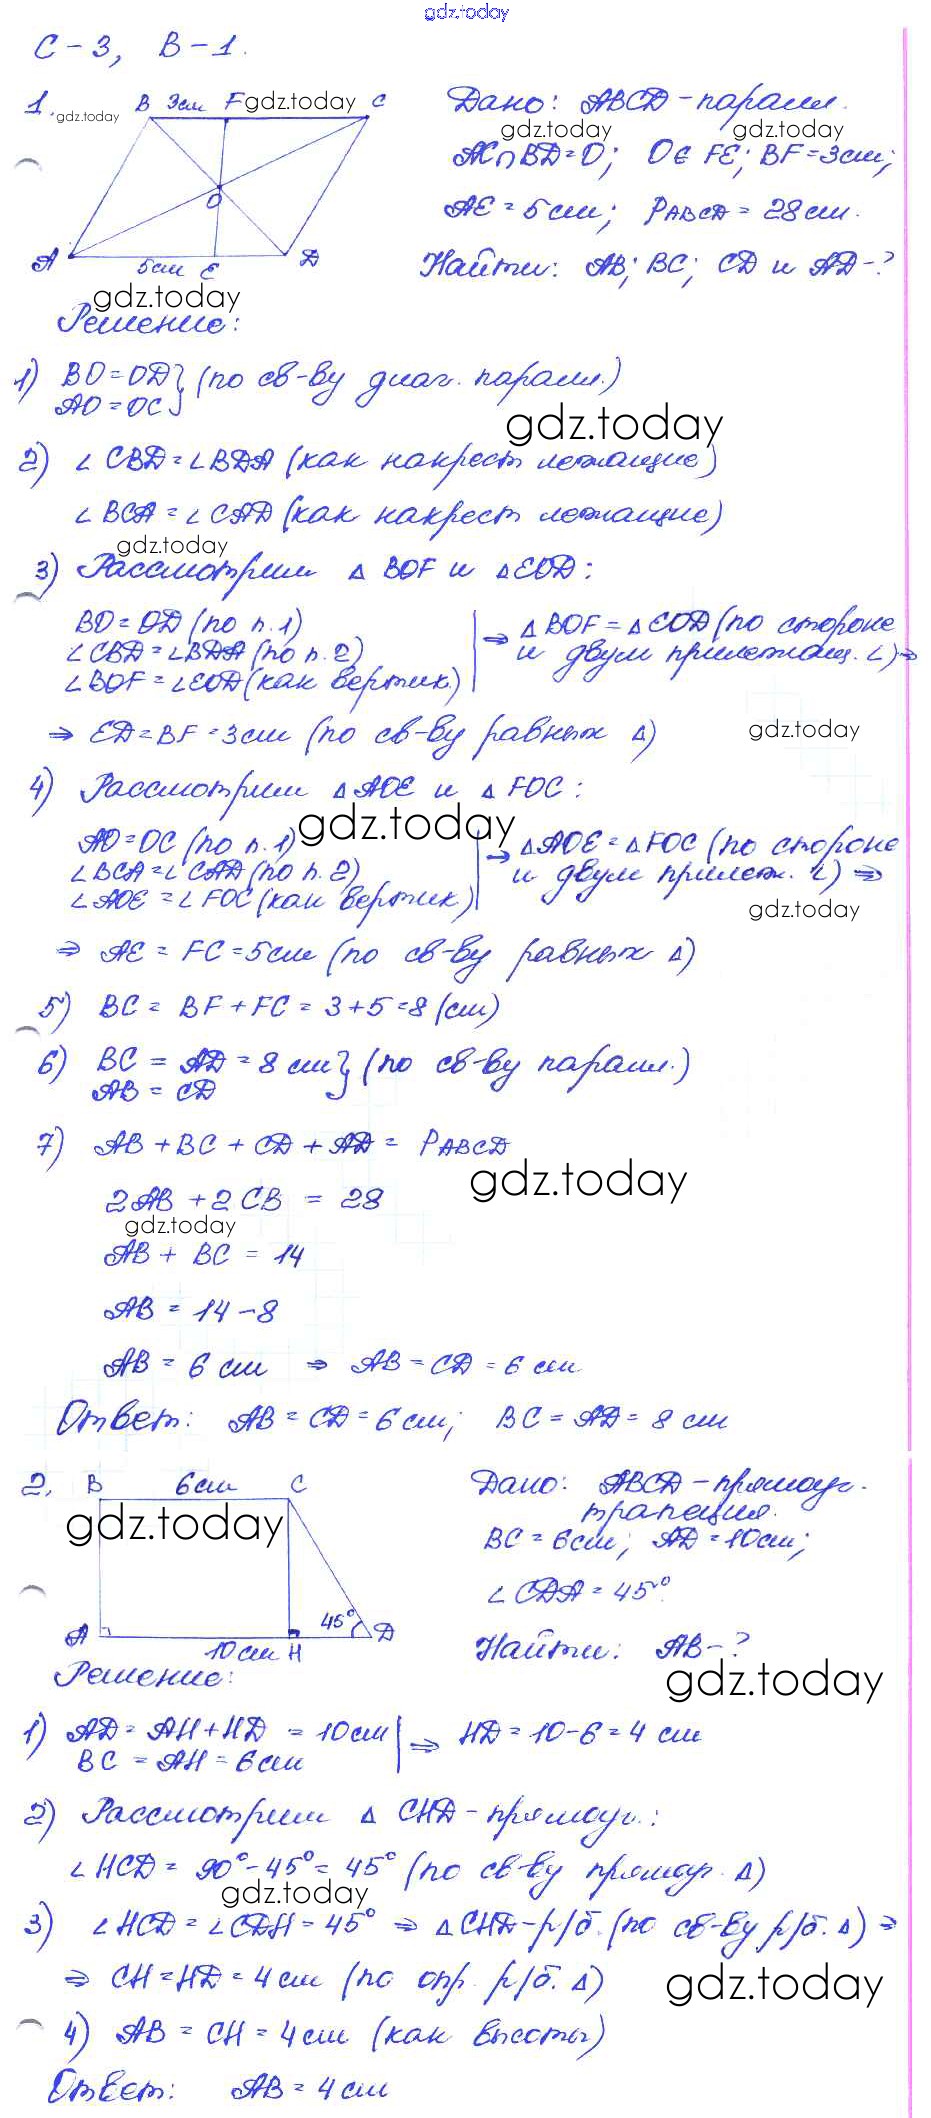 gdz.today
С-3, В-1.
1. gdz.today B 3см F gdz.today C
Дано: ABCD - паралл.
gdz.today gdz.today
AC∩BD=O; O∈FE; BF=3см;
O
AE = 5см; PABCD = 28см.
A 5см E D
Найти: AB; BC; CD и AD-?
gdz.today
Решение:
1) BO=OD } (по св-ву диаг. паралл.)
AO=OC
gdz.today
2) ∠CBD=∠BDA (как накрест лежащие)
∠BCA=∠CAD (как накрест лежащие)
gdz.today
3) Рассмотрим △BOF и △EOD:
BO=OD (по п.1)
∠CBD=∠BDA (по п.2)
∠BOF=∠EOD (как вертик.)
⇒ △BOF=△EOD (по стороне
и двум прилежащ. ∠) ⇒
⇒ ED=BF=3см (по св-ву равных △)
gdz.today
4) Рассмотрим △AOE и △FOC:
gdz.today
AO=OC (по п.1)
∠BCA=∠CAD (по п.2)
∠AOE=∠FOC (как вертик)
⇒ △AOE=△FOC (по стороне
и двум прилеж. ∠) ⇒
gdz.today
⇒ AE = FC = 5см (по св-ву равных △)
5) BC = BF + FC = 3+5=8 (см)
6) BC = AD = 8 см } (по св-ву паралл.)
AB = CD
7) AB + BC + CD + AD = PABCD
gdz.today
2AB + 2CB = 28
gdz.today
AB + BC = 14
AB = 14-8
AB = 6 см ⇒ AB = CD = 6 см
Ответ: AB = CD = 6 см; BC = AD = 8 см
2. B 6см C
Дано: ABCD - прямоуг.
трапеция.
gdz.today
BC = 6см; AD=10см;
∠CDA = 45°.
A 10см H 45° D
Найти: AB-?
gdz.today
Решение:
1) AD = AH + HD = 10см
BC = AH = 6см
⇒ HD = 10-6 = 4 см
2) Рассмотрим △CHD - прямоуг.:
∠HCD = 90°-45° = 45° (по св-ву прямоуг. △)
gdz.today
3) ∠HCD = ∠CDH = 45° ⇒ △CHD - р/б. (по св-ву р/б. △) ⇒
⇒ CH=HD=4см (по опр. р/б. △)
gdz.today
4) AB = CH = 4см (как высоты)
Ответ: AB = 4см